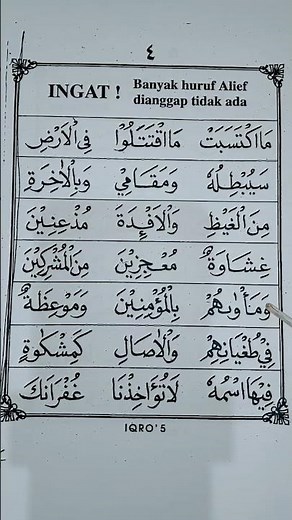 ٤
INGAT ! Banyak huruf Alief
dianggap tidak ada
مَااكْتَسَبَتْ مَااقْتَتَلُوْا فِى الْاَرْضِ
سَيُبْطِلُهٗ وَمَقَامِيْ وَبِالْاٰخِرَةِ
مِنَ الْغَيْظِ وَالْاَفْـِٕدَةَ مُذْعِنِيْنَ
غِشَاوَةٌ مُعْجِزِيْنَ مِنَ الْمُشْرِكِيْنَ
وَمَأْوٰىهُمْ بِالْمُؤْمِنِيْنَ وَمَوْعِظَةٌ
فِيْ طُغْيَانِهِمْ وَالْاٰصَالِ كَمِشْكٰوةٍ
فِيْهَا اسْمُهٗ لَاتُؤَاخِذْنَا غُفْرَانَكَ
IQRO'5